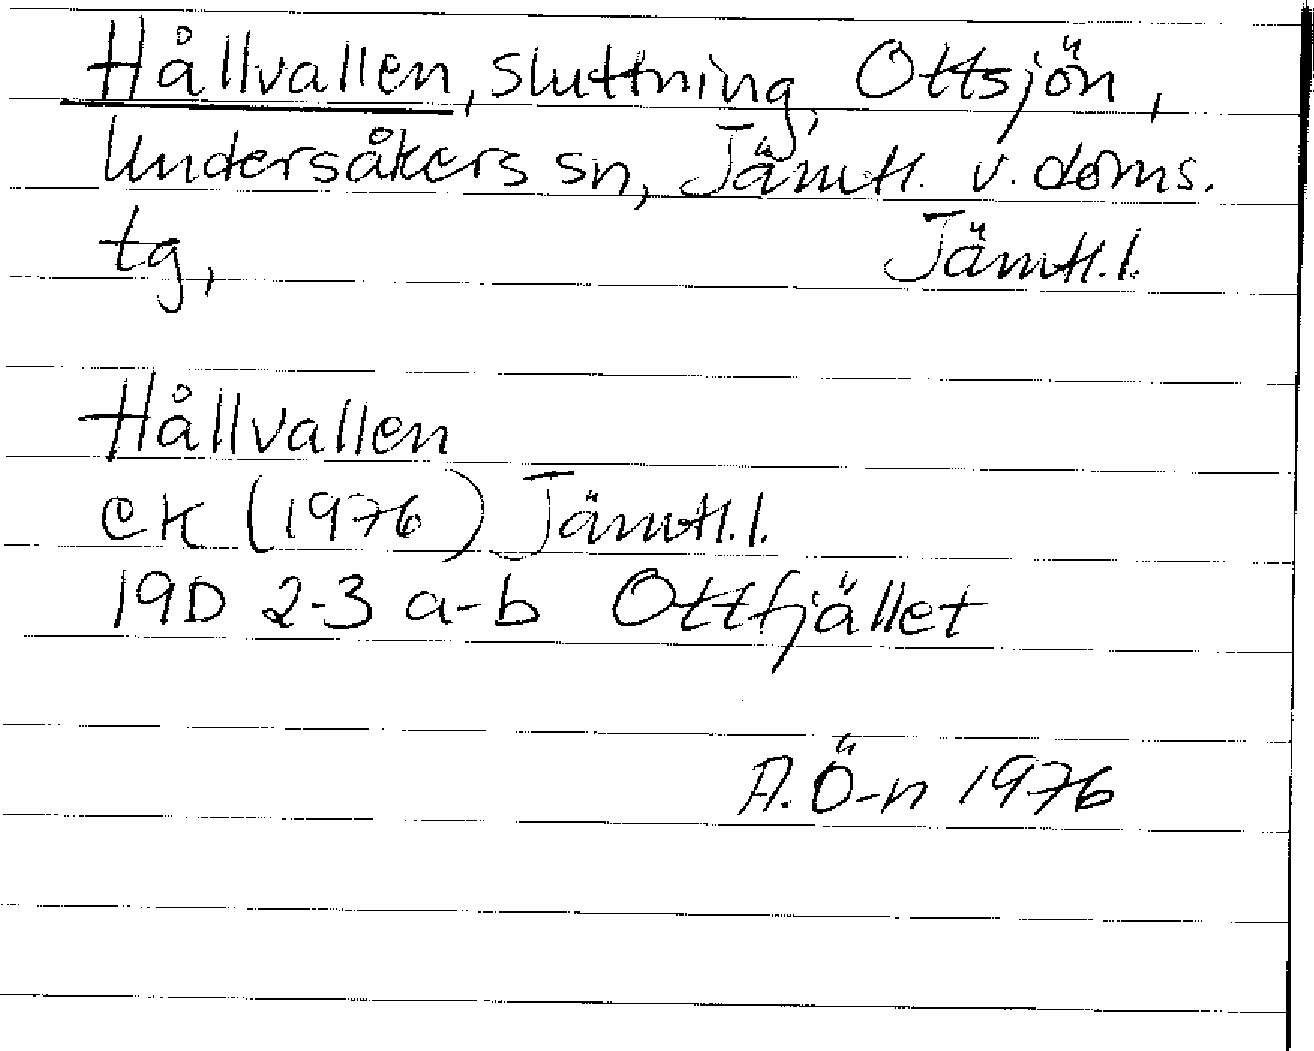 Hållvallen, sluttning, Ottsjön,
Undersåkers sn, Jämtl. v. doms.
tg, Jämtl.l.
Hållvallen
eK (1976) Jämtl.l.
19D 2-3 a-b Ottfjället
A.Ö-n 1976